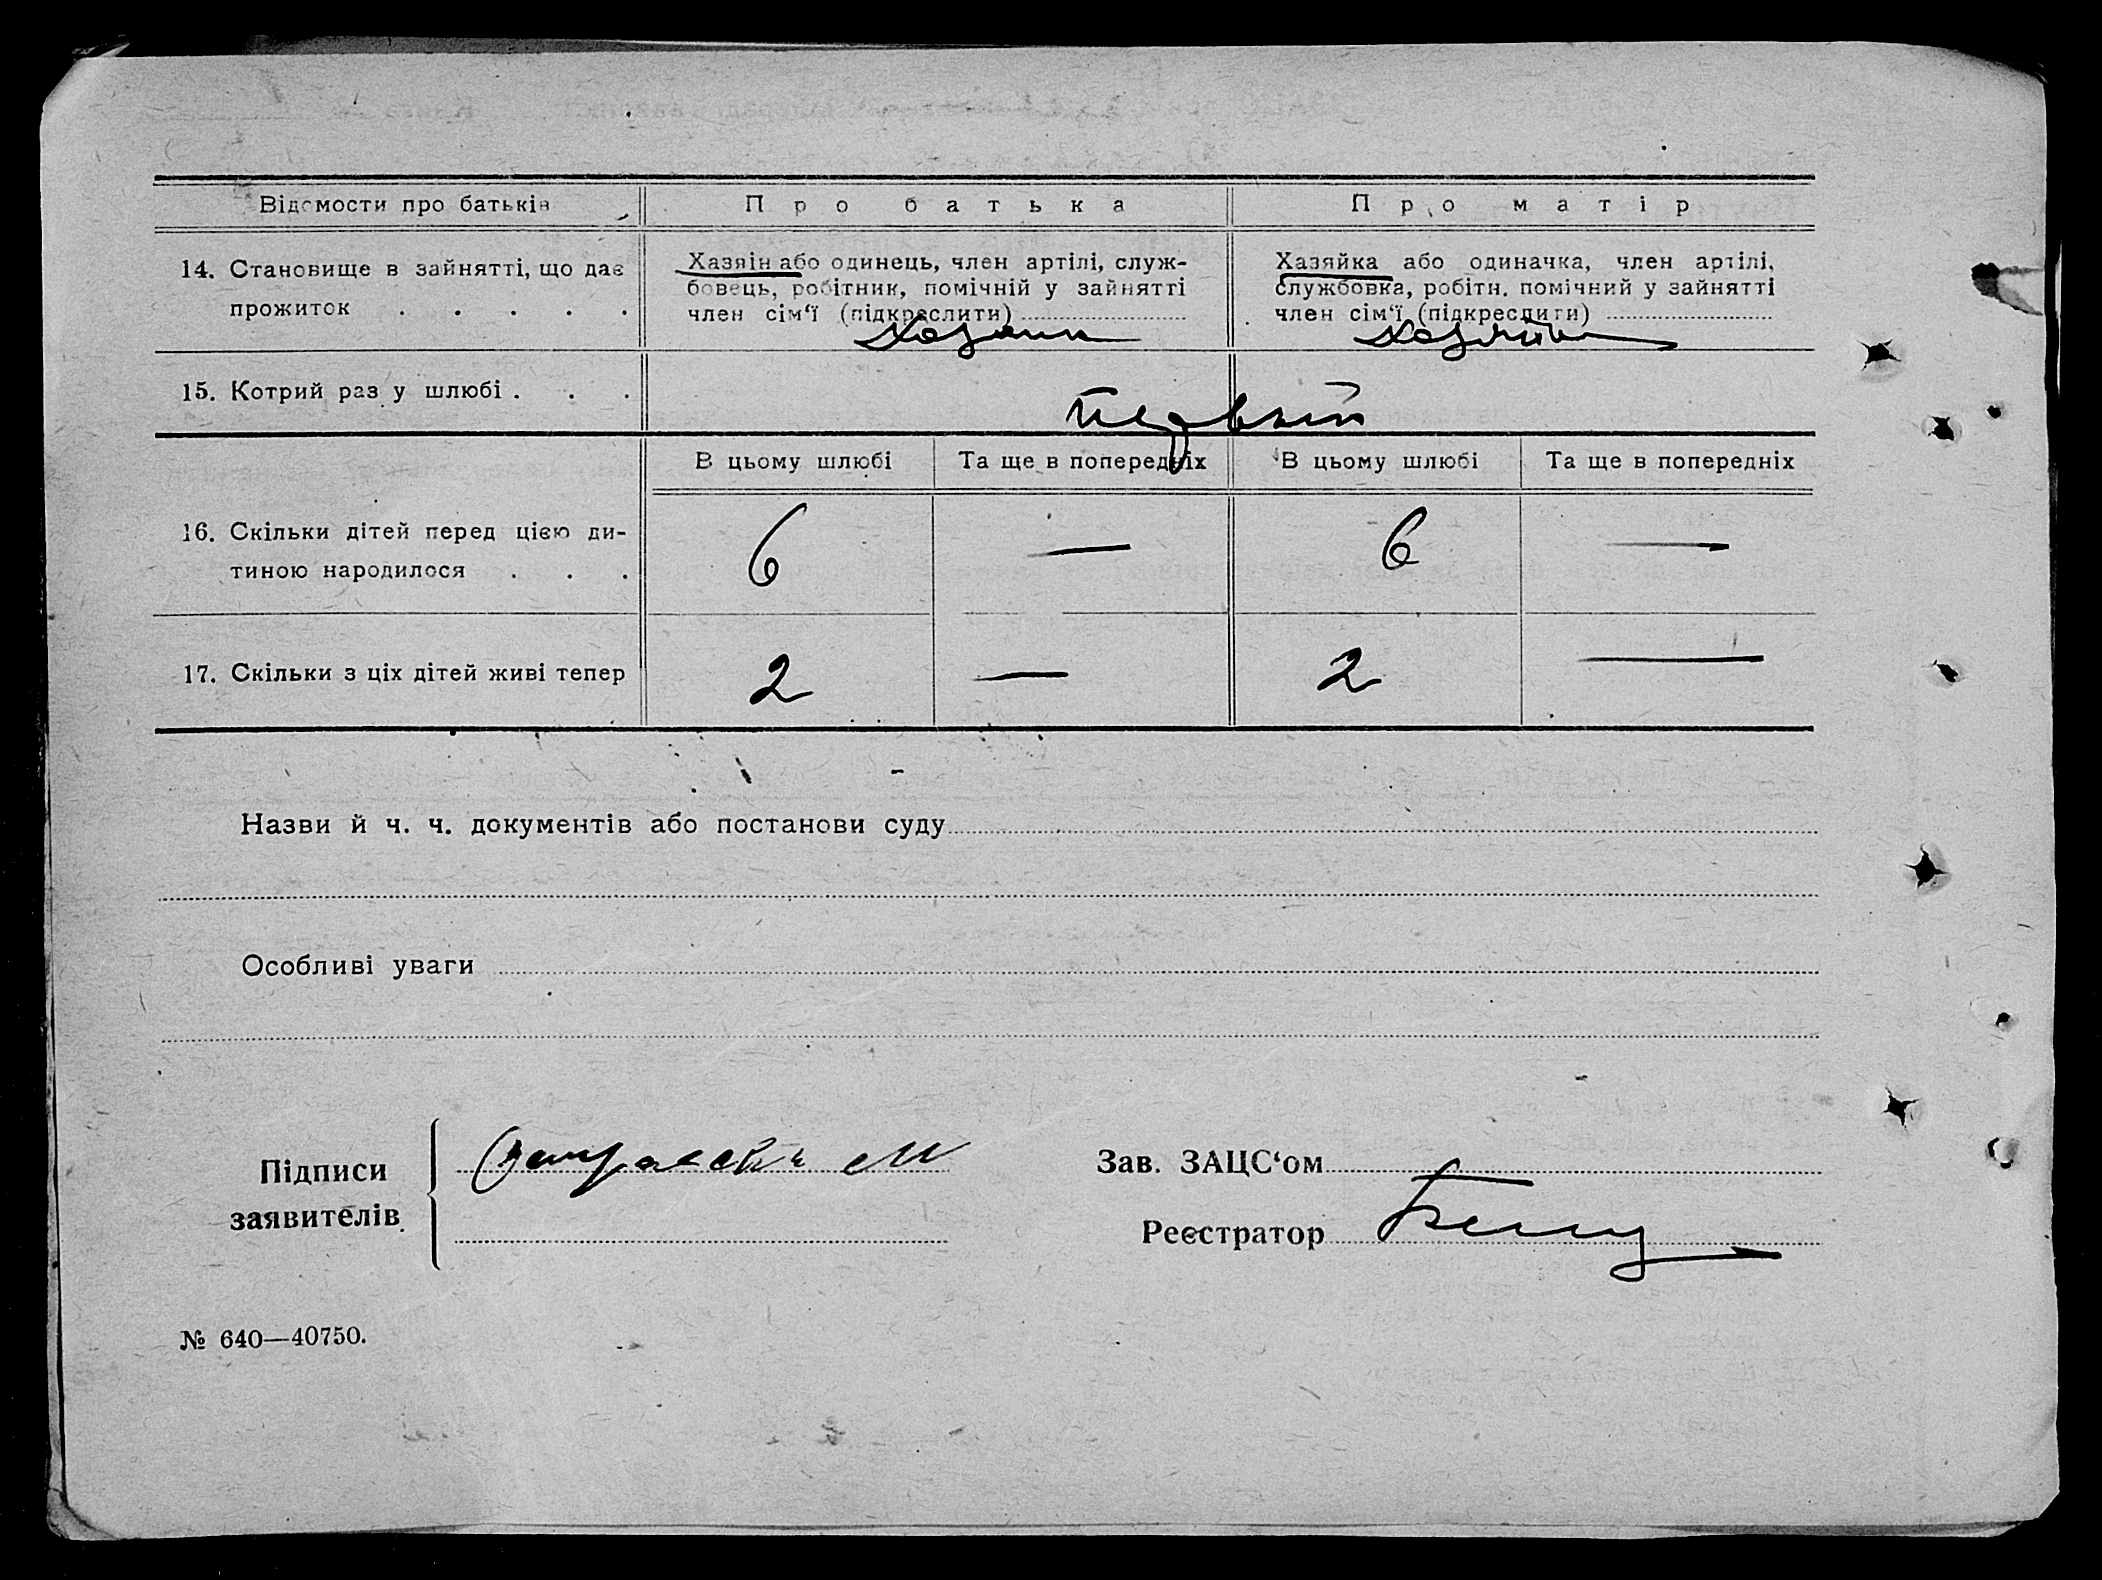 Відомости про батьків
Про батька
Про матір
14. Становище в зайнятті, що дає
прожиток . . . . .
Хазяін або одинець, член артілі, служ-
бовець, робітник, помічній у зайнятті
член сім‘ї (підкреслити)
Хазяин
Хазяйка або одиначка, член артілі,
службовка, робітн. помічний у зайнятті
член сім‘ї (підкреслити)
Хазяйка
15. Котрий раз у шлюбі . . .
Первый
В цьому шлюбі
Та ще в попередніх
В цьому шлюбі
Та ще в попередніх
16. Скільки дітей перед цією ди-
тиною народилося . . .
6 — 6 —
17. Скільки з ціх дітей живі тепер
2 — 2 —
Назви й ч. ч. документів або постанови суду
Особливі уваги
Підписи
заявителів
Зав. ЗАЦС‘ом
Реєстратор
№ 640—40750.